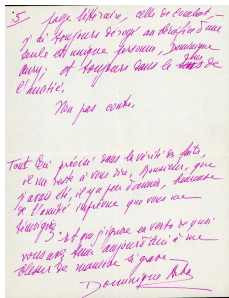 5 page littéraire, celle de combat —
j'ai toujours dérogé au bénéfice d'une
seule et unique personne, Dominique
Aury; et toujours dans le sens de
l'amitié.
Non pas contre.
Tout ceci précisé dans la vérité des faits,
il me reste à vous dire, Monsieur, que
j'avais été, il y a peu d'années,
de l'amitié que vous me
témoigniez.
J'ignore en vertu de quoi
vous avez tenu aujourd'hui à me
blesser de manière si grave.
Dominique